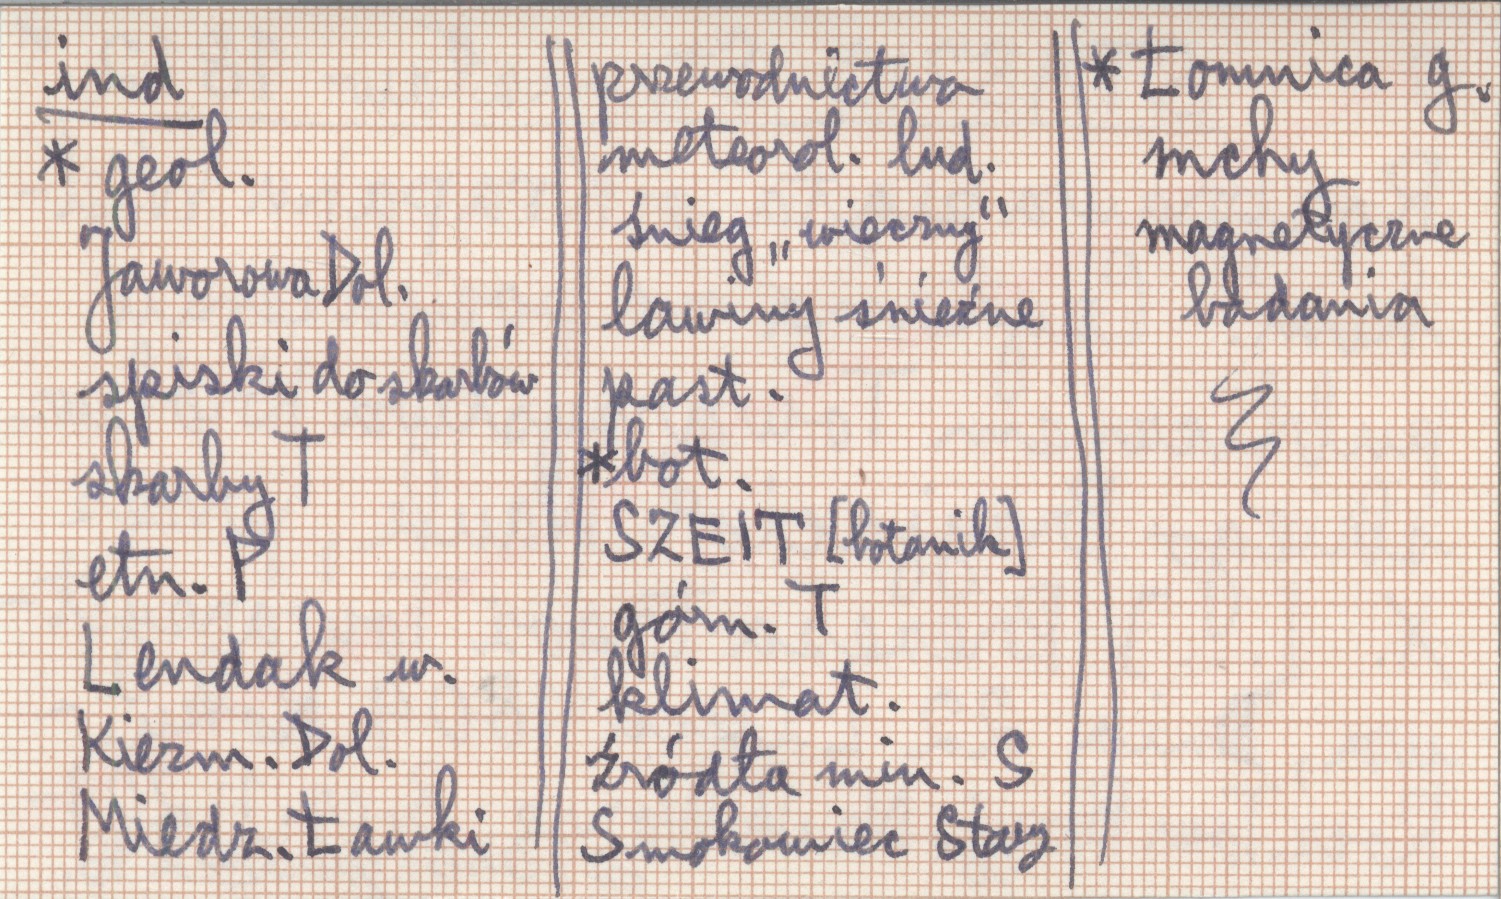 ind
* geol.
Jaworowa Dol.
spiski do skarbów
skarby T
etn. P
Lendak w.
Kiezm. Dol.
Miedz. Ławki
przewodnictwa
meteorol. lud.
śnieg „wieczny"
lawiny śnieżne
past.
* bot.
SZEIT [botanik]
górn. T
klimat.
źródła min. S
Smokowiec Stary
* Łomnica g.
mchy
magnetyczne
badania